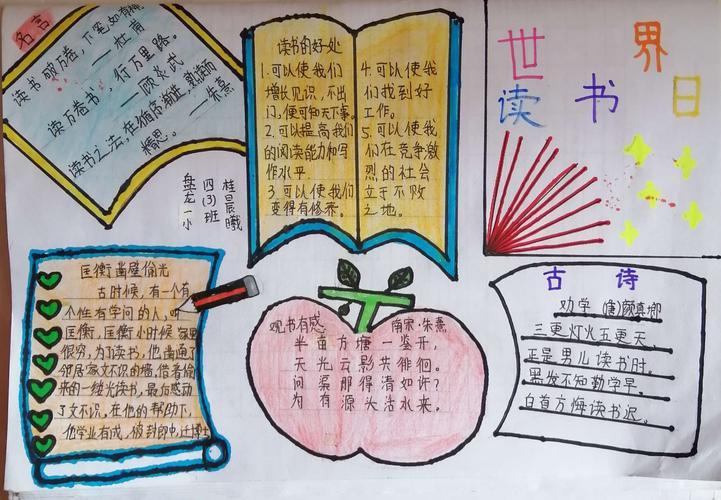 名言
读书破万卷，下笔如有神
——杜甫
读万卷书，行万里路。
——顾炎武
读书之法，在循序渐进，熟读而
精思。
——朱熹
盘龙一小
四(3)班
桂晨曦
读书的好处
1.可以使我们
增长见识，不出
门，便可知天下事。
2.可以提高我们
的阅读能力和写
作水平.
3.可以使我们
变得有修养。
4.可以使我
们找到好
工作。
5.可以使我
们在竞争激
烈的社会
立于不败
之地。
世界
读书日
匡衡凿壁偷光
古时候，有一个有
个性有学问的人，叫
匡衡，匡衡小时候家里
很穷，为了读书，他凿通了
邻居家文不识的墙，借着偷
来的一缕光读书，最后感动
了文不识。在他的帮助下，
他学业有成，被封郎中，迁博士
观书有感
南宋·朱熹
半亩方塘一鉴开，
天光云影共徘徊。
问渠那得清如许？
为有源头活水来。
古诗
劝学 (唐)颜真卿
三更灯火五更天，
正是男儿读书时。
黑发不知勤学早，
白首方悔读书迟。